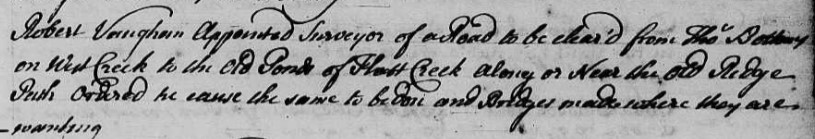 Robert Vaughan Appointed Surveyor of a Road to be clear'd from Tho.s
on West Creek to the Old Ponds of Flatt Creek along or Near the old Ridge
Path Ordered he cause the same to be don and Bridges made where they are
wanting